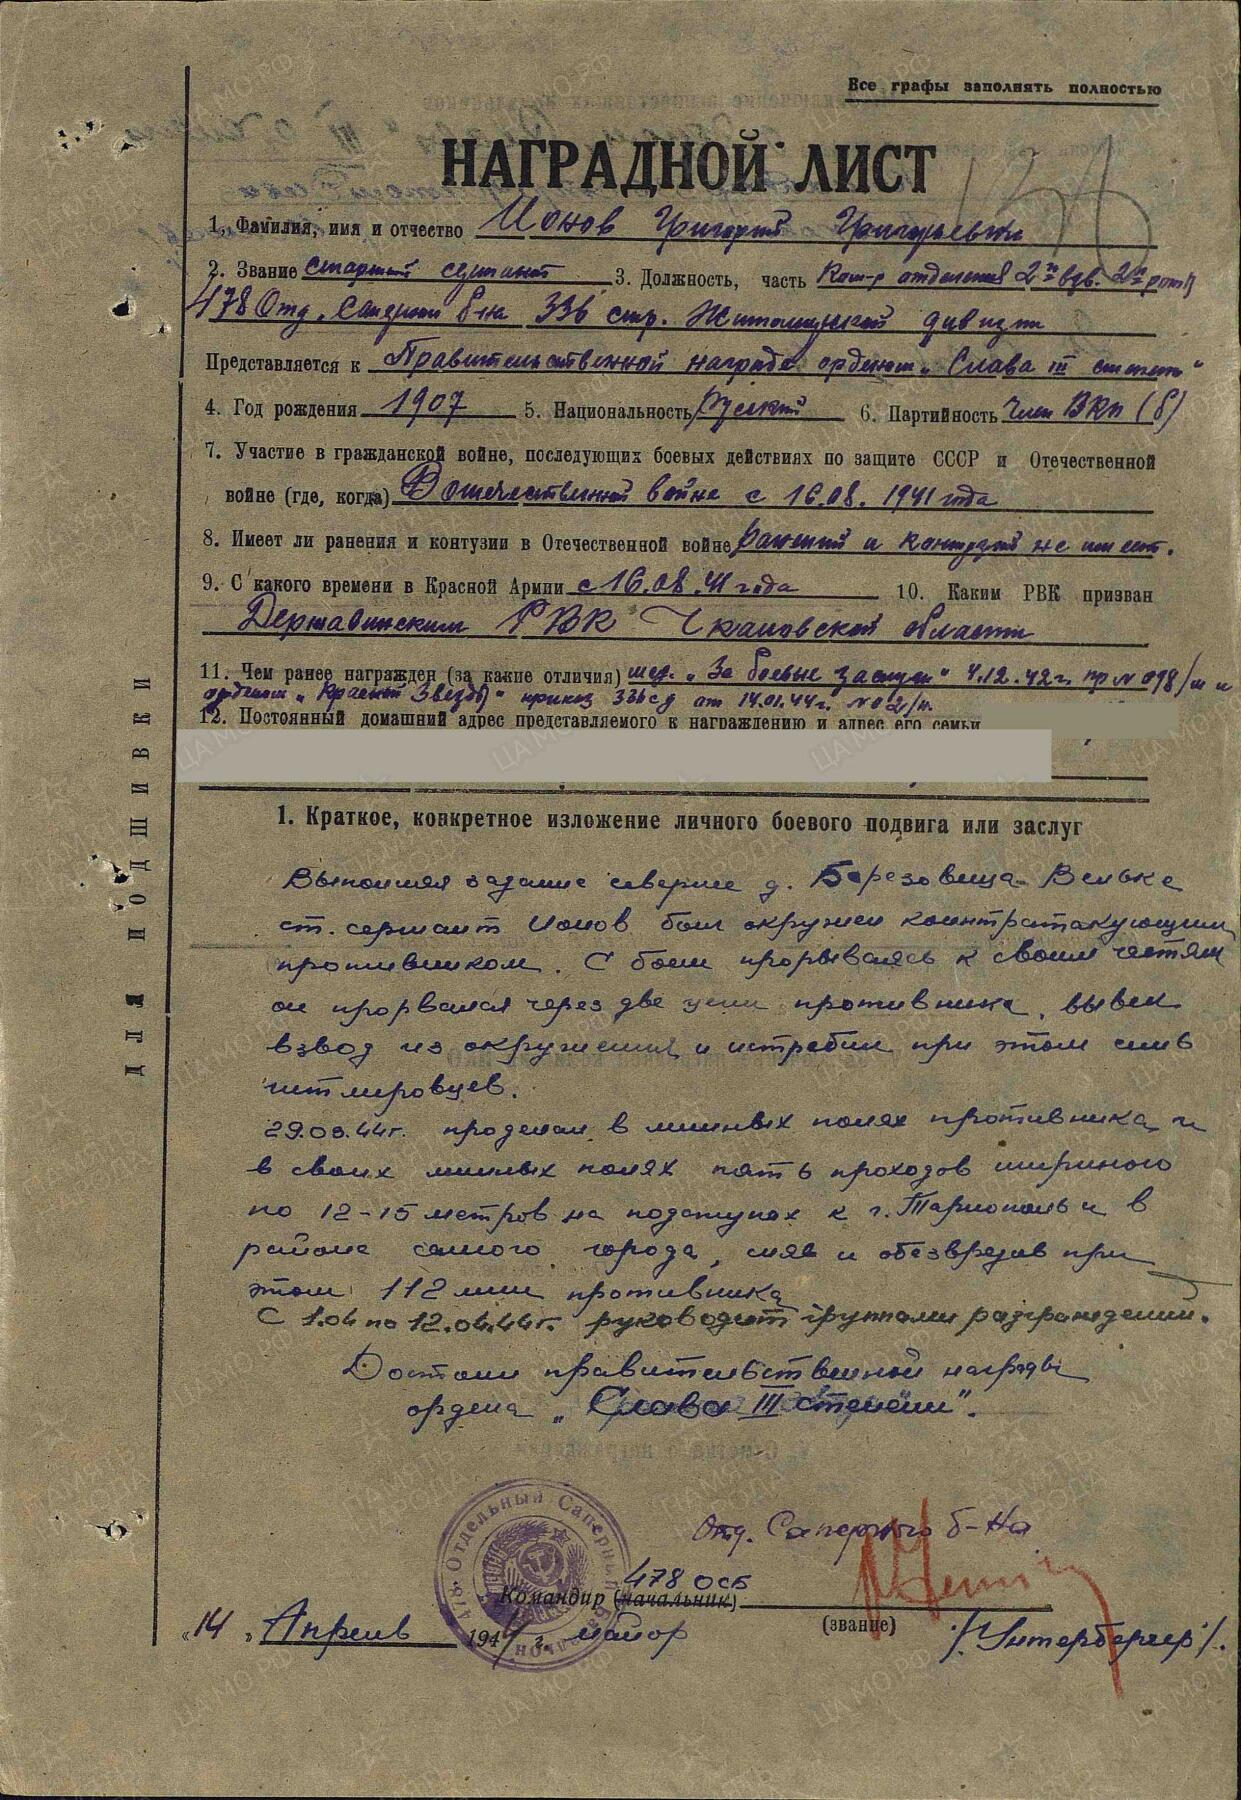 Все графы заполнять полностью
НАГРАДНОЙ ЛИСТ
1. Фамилия, имя и отчество Ионов Григорий Григорьевич
2. Звание старший сержант 3. Должность, часть Ком-р отделения 2го взв. 2й роты
478 Отд. Саперный б-на 336 стр. Житомирской дивизии
Представляется к Правительственной награде орденом „Слава III степени"
4. Год рождения 1907 5. Национальность Русский 6. Партийность Член ВКП(б)
7. Участие в гражданской войне, последующих боевых действиях по защите СССР и Отечественной
войне (где, когда) В отечественной войне с 16.08.1941 года
8. Имеет ли ранения и контузии в Отечественной войне Ранений и контузий не имеет.
9. С какого времени в Красной Армии с 16.08.41 года 10. Каким РВК призван
Державинским РВК Чкаловской области
11. Чем ранее награжден (за какие отличия) мед. „За боевые заслуги" 4.12.42г. пр № 098/н и
орденом „Красной Звезды" приказ 336 сд от 14.01.44г. № 02/н.
12. Постоянный домашний адрес представляемого к награждению и адрес его семьи
1. Краткое, конкретное изложение личного боевого подвига или заслуг
Выполняя задание севернее д. Березовица-Вельке
ст. сержант Ионов был окружен контратакующим
противником. С боем прорываясь к своим частям
он прорвался через две цепи противника, вывел
взвод из окружения и истребил при этом
гитлеровцев.
29.03.44г. проделал в минных полях противника и
в своих минных полях пять проходов шириною
по 12-15 метров на подступах к г. Тарнополь и в
районе самого города, сняв и обезвредив при
этом 112 мин противника
С 1.04 по 12.04.44г. руководит группами разграждения.
Достоин правительственной награды
ордена „Слава III степени".
478 Отдельный Саперный Батальон
Отд. Саперного б-на
478 ОСБ
Командир (начальник)
(звание)
„14" Апрель 1944 г. майор /Унтербергер/.
ДЛЯ ПОДШИВКИ
ЦАМО РФ
ПАМЯТЬ НАРОДА